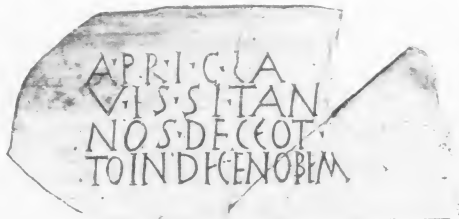 A·P·R·I·C·LA
V·I·S·S·I·TAN
NOS·DECEOT·
TOINDICENOBEM